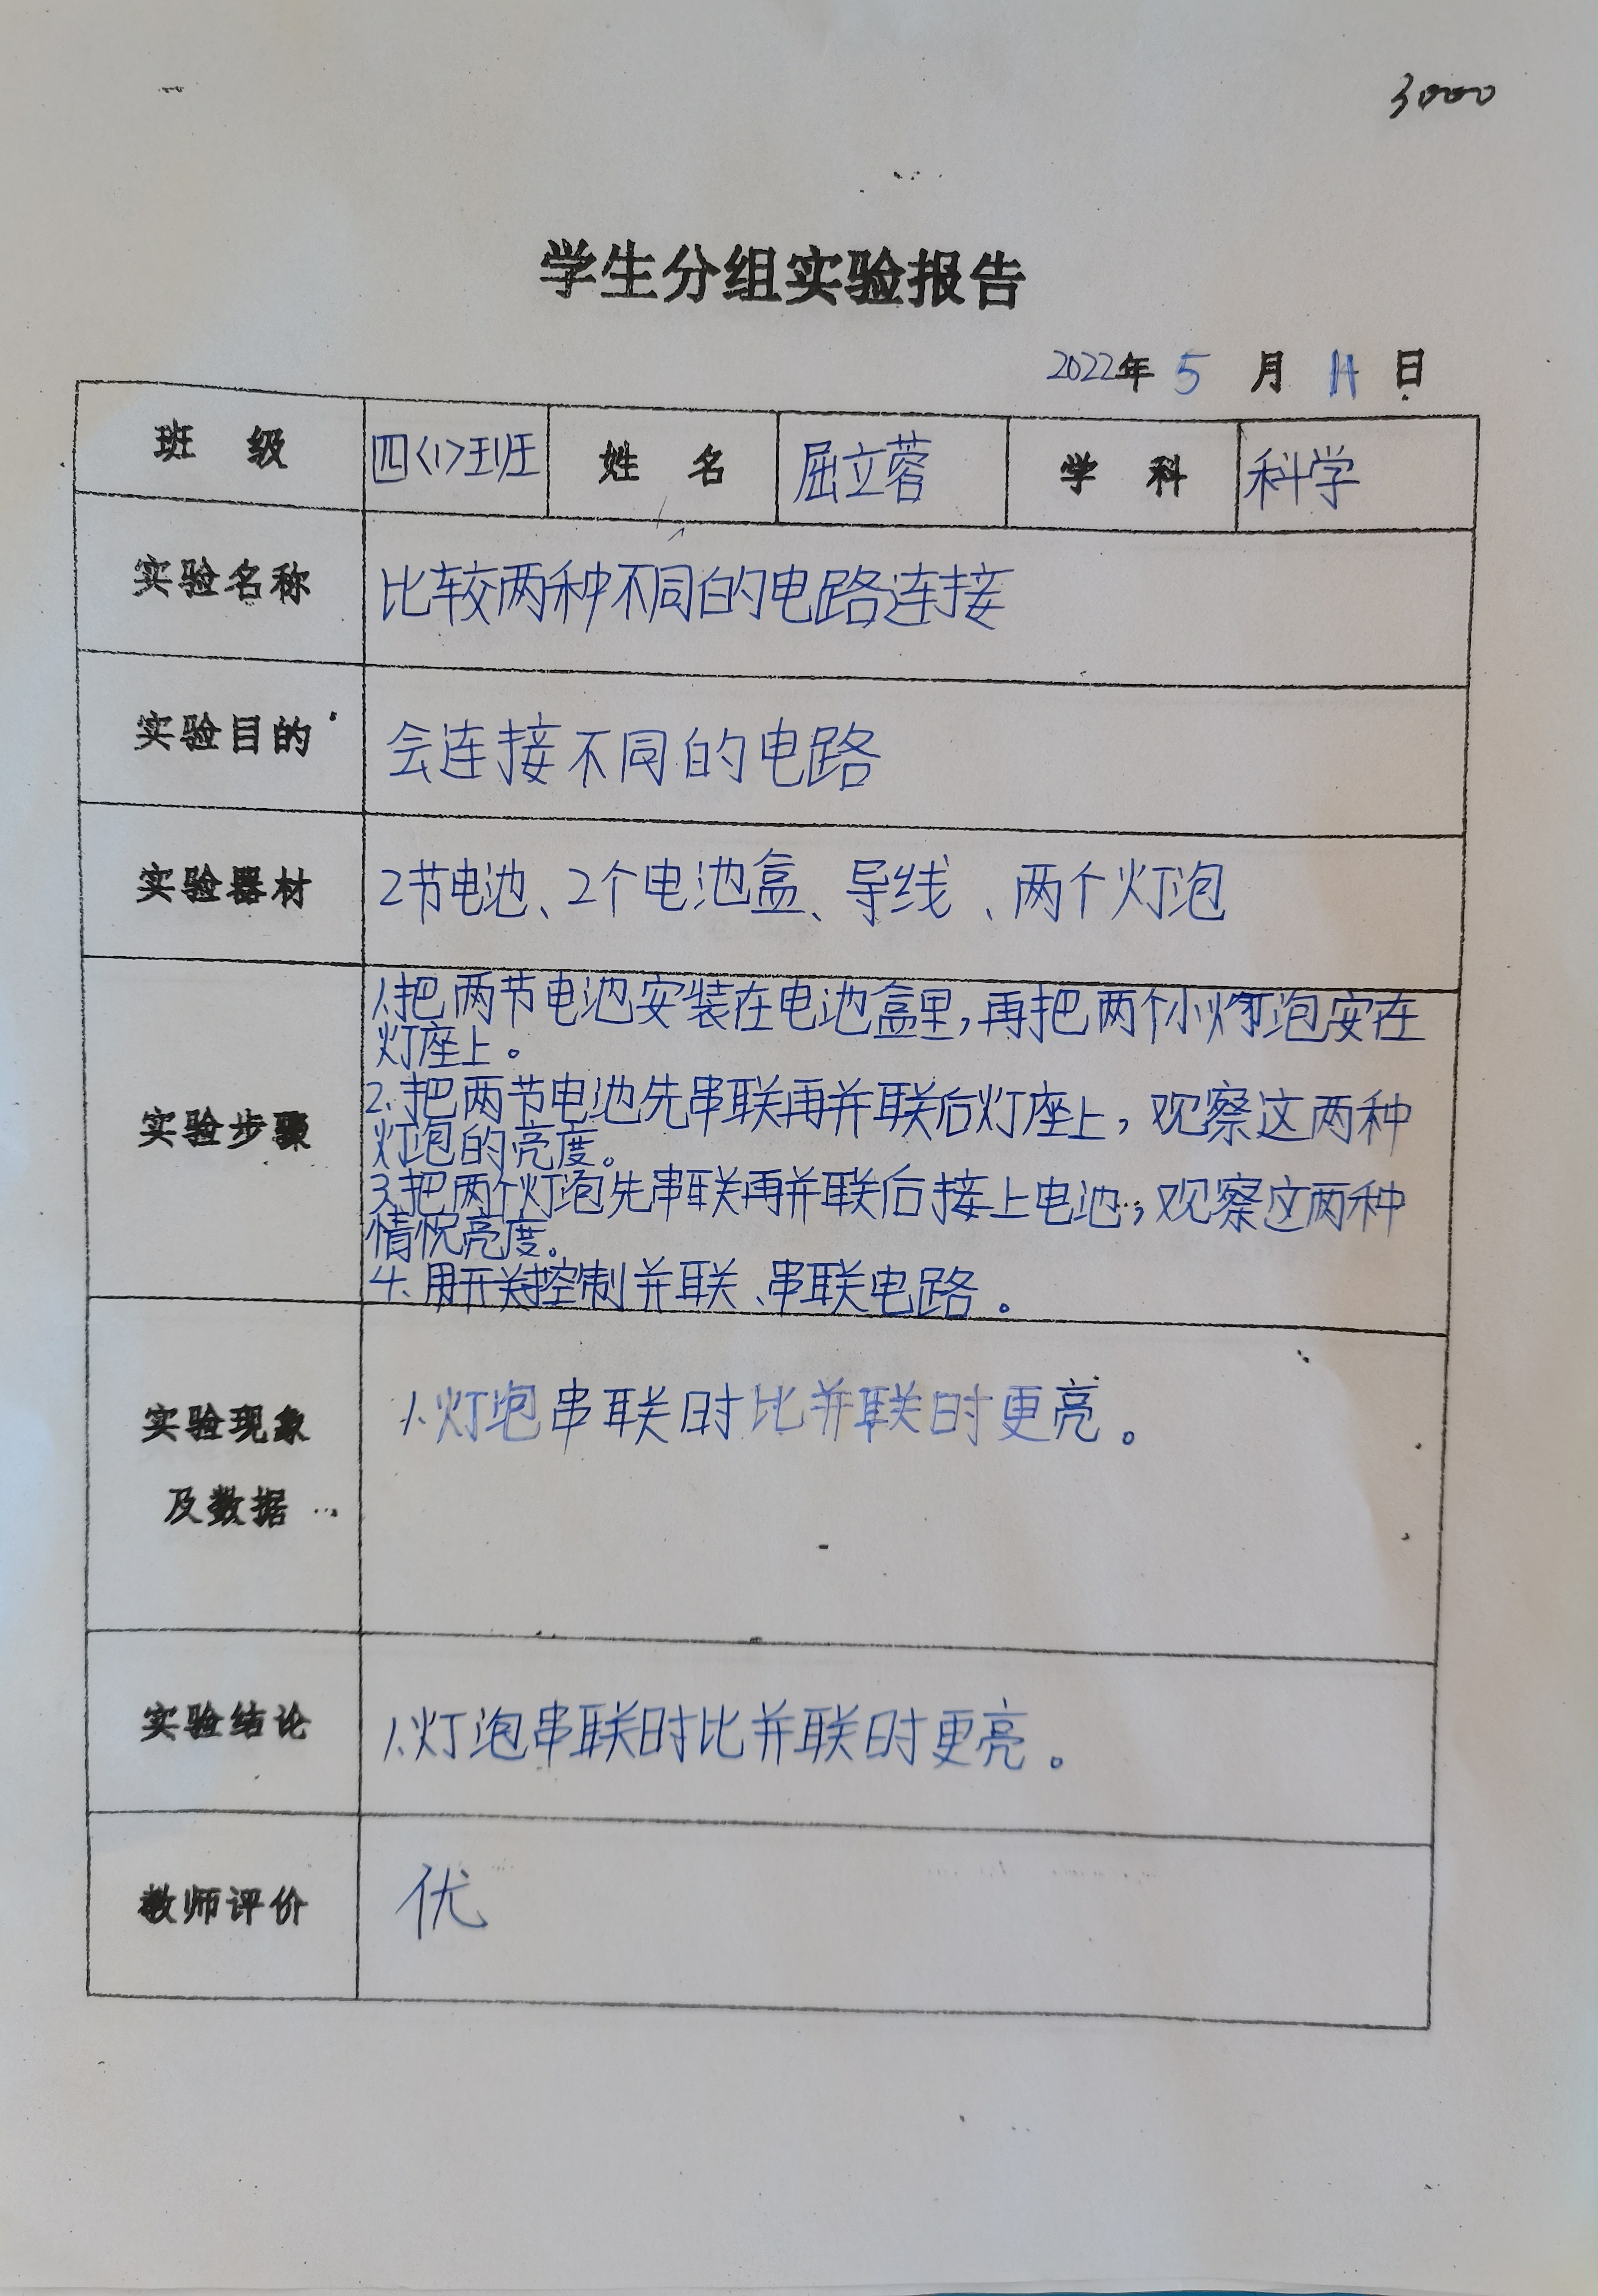 3000
学生分组实验报告
2022年 5 月 11 日
班 级 四<1>班 姓 名 屈立蓉 学 科 科学
实验名称 比较两种不同的电路连接
实验目的 会连接不同的电路
实验器材 2节电池、2个电池盒、导线、两个灯泡
实验步骤
1.把两节电池安装在电池盒里,再把两个小灯泡安在
灯座上。
2.把两节电池先串联再并联后灯座上,观察这两种
灯泡的亮度。
3.把两个灯泡先串联再并联后接上电池,观察这两种
情况亮度。
4、用开关控制并联、串联电路。
实验现象
及数据
1.灯泡串联时比并联时更亮。
实验结论 1.灯泡串联时比并联时更亮。
教师评价 优